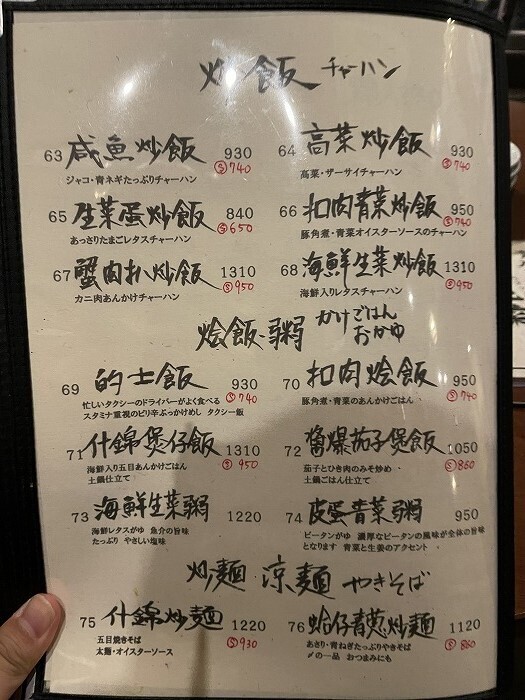 炒飯 チャーハン
63 咸魚炒飯 930
Ⓢ740
ジャコ・青ネギたっぷりチャーハン
64 高菜炒飯 930
Ⓢ740
高菜・ザーサイチャーハン
65 生菜蛋炒飯 840
Ⓢ650
あっさりたまごレタスチャーハン
66 扣肉青菜炒飯 950
Ⓢ740
豚角煮・青菜オイスターソースのチャーハン
67 蟹肉扒炒飯 1310
Ⓢ950
カニ肉あんかけチャーハン
68 海鮮生菜炒飯 1310
Ⓢ950
海鮮入りレタスチャーハン
燴飯・粥 かけごはん
おかゆ
69 的士飯 930
Ⓢ740
忙しいタクシーのドライバーがよく食べる
スタミナ重視のピリ辛ぶっかけめし タクシー飯
70 扣肉燴飯 950
Ⓢ740
豚角煮・青菜のあんかけごはん
71 什錦煲仔飯 1310
Ⓢ950
海鮮入り五目あんかけごはん
土鍋仕立て
72 醬爆茄子煲飯 1050
Ⓢ860
茄子とひき肉のみそ炒め
土鍋ごはん仕立て
73 海鮮生菜粥 1220
海鮮レタスがゆ 魚介の旨味
たっぷり やさしい塩味
74 皮蛋青菜粥 950
ピータンがゆ 濃厚なピータンの風味が全体の旨味
となります 青菜と生姜のアクセント
炒麺 涼麺 やきそば
75 什錦炒麺 1220
Ⓢ930
五目焼きそば
太麺・オイスターソース
76 蛤仔青葱炒麺 1120
Ⓢ860
あさり・青ねぎたっぷりやきそば
〆の一品 おつまみにも